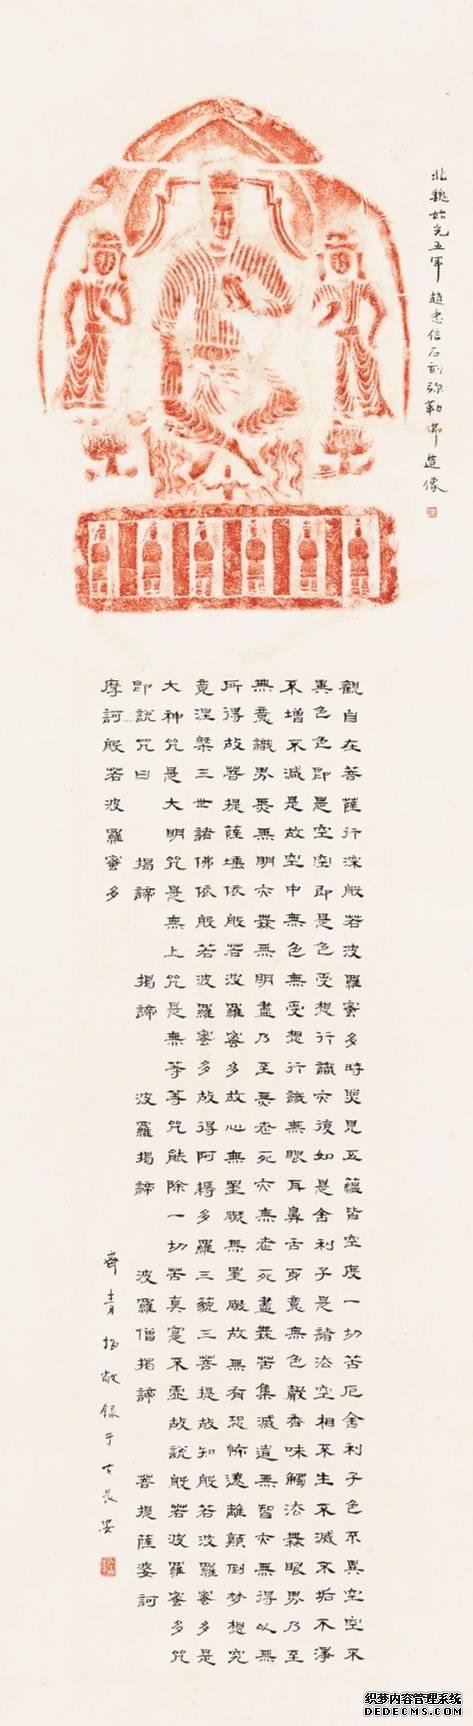 北魏始光五年 趙忠信石刻弥勒佛造像
觀自在菩薩行深般若波羅蜜多時照見五蘊皆空度一切苦厄舍利子色不異空空不
異色色即是空空即是色受想行識亦復如是舍利子是諸法空相不生不滅不垢不淨
不增不減是故空中無色無受想行識無眼耳鼻舌身意無色聲香味觸法無眼界乃至
無意識界無無明亦無無明盡乃至無老死亦無老死盡無苦集滅道無智亦無得以無
所得故菩提薩埵依般若波羅蜜多故心無罣礙無罣礙故無有恐怖遠離顛倒梦想究
竟涅槃三世諸佛依般若波羅蜜多故得阿耨多羅三藐三菩提故知般若波羅蜜多是
大神咒是大明咒是無上咒是無等等咒能除一切苦真實不虛故說般若波羅蜜多咒
即說咒曰 揭諦 揭諦 波羅揭諦 波羅僧揭諦 菩提薩婆訶
摩訶般若波羅蜜多
齊青 敬錄于古長安
织梦内容管理系统
DEDECMS.COM